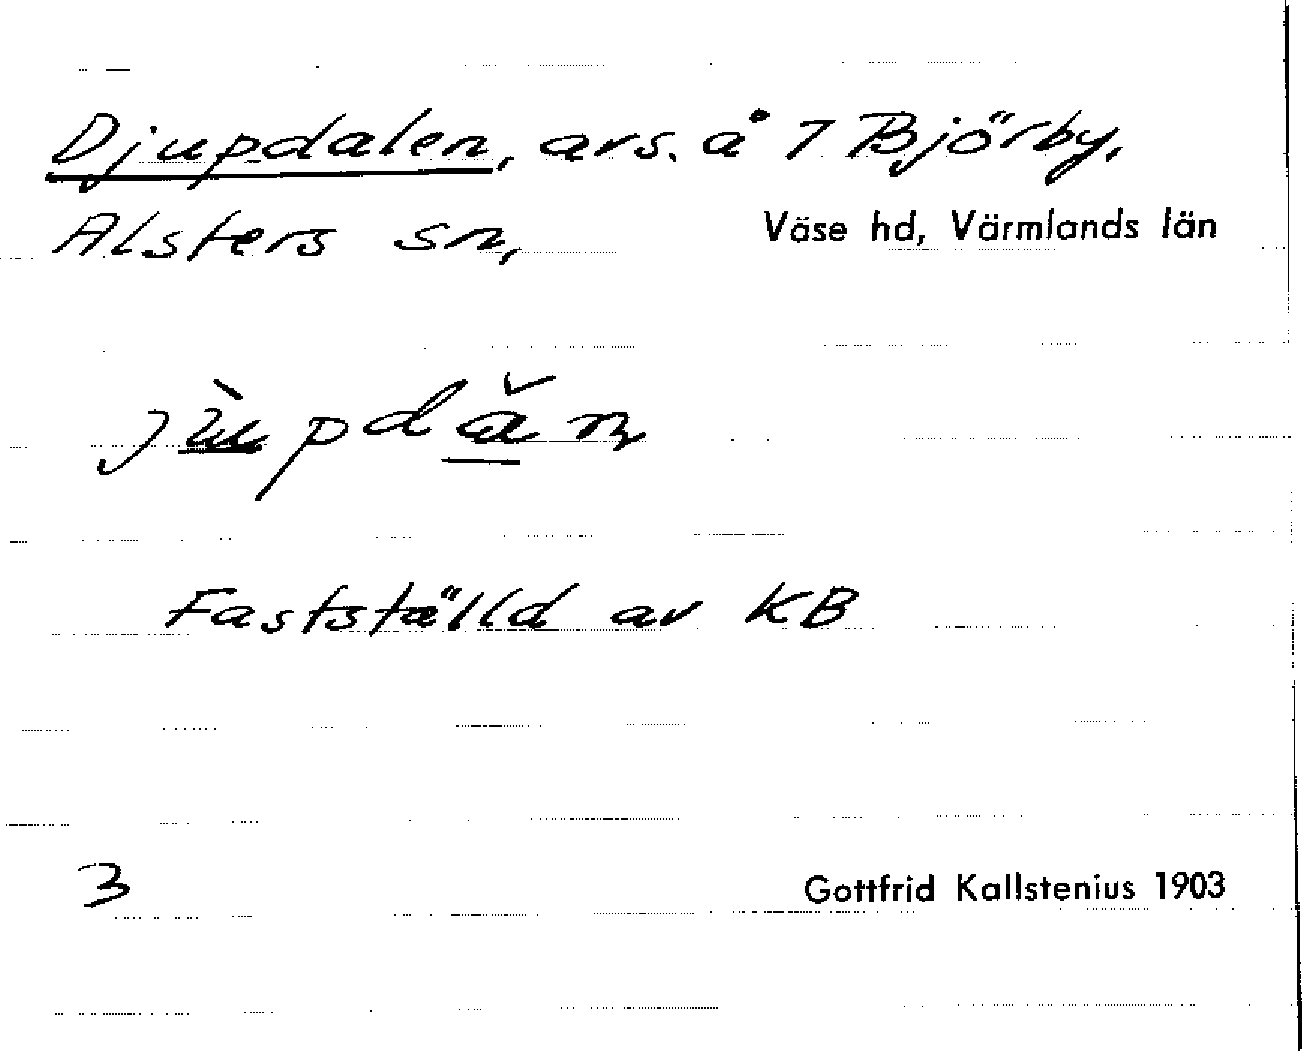 Djupdalen, avs. å 7 Björby,
Alsters sn, Väse hd, Värmlands län
jùpdǎn
Fastställd av KB
3 Gottfrid Kallstenius 1903